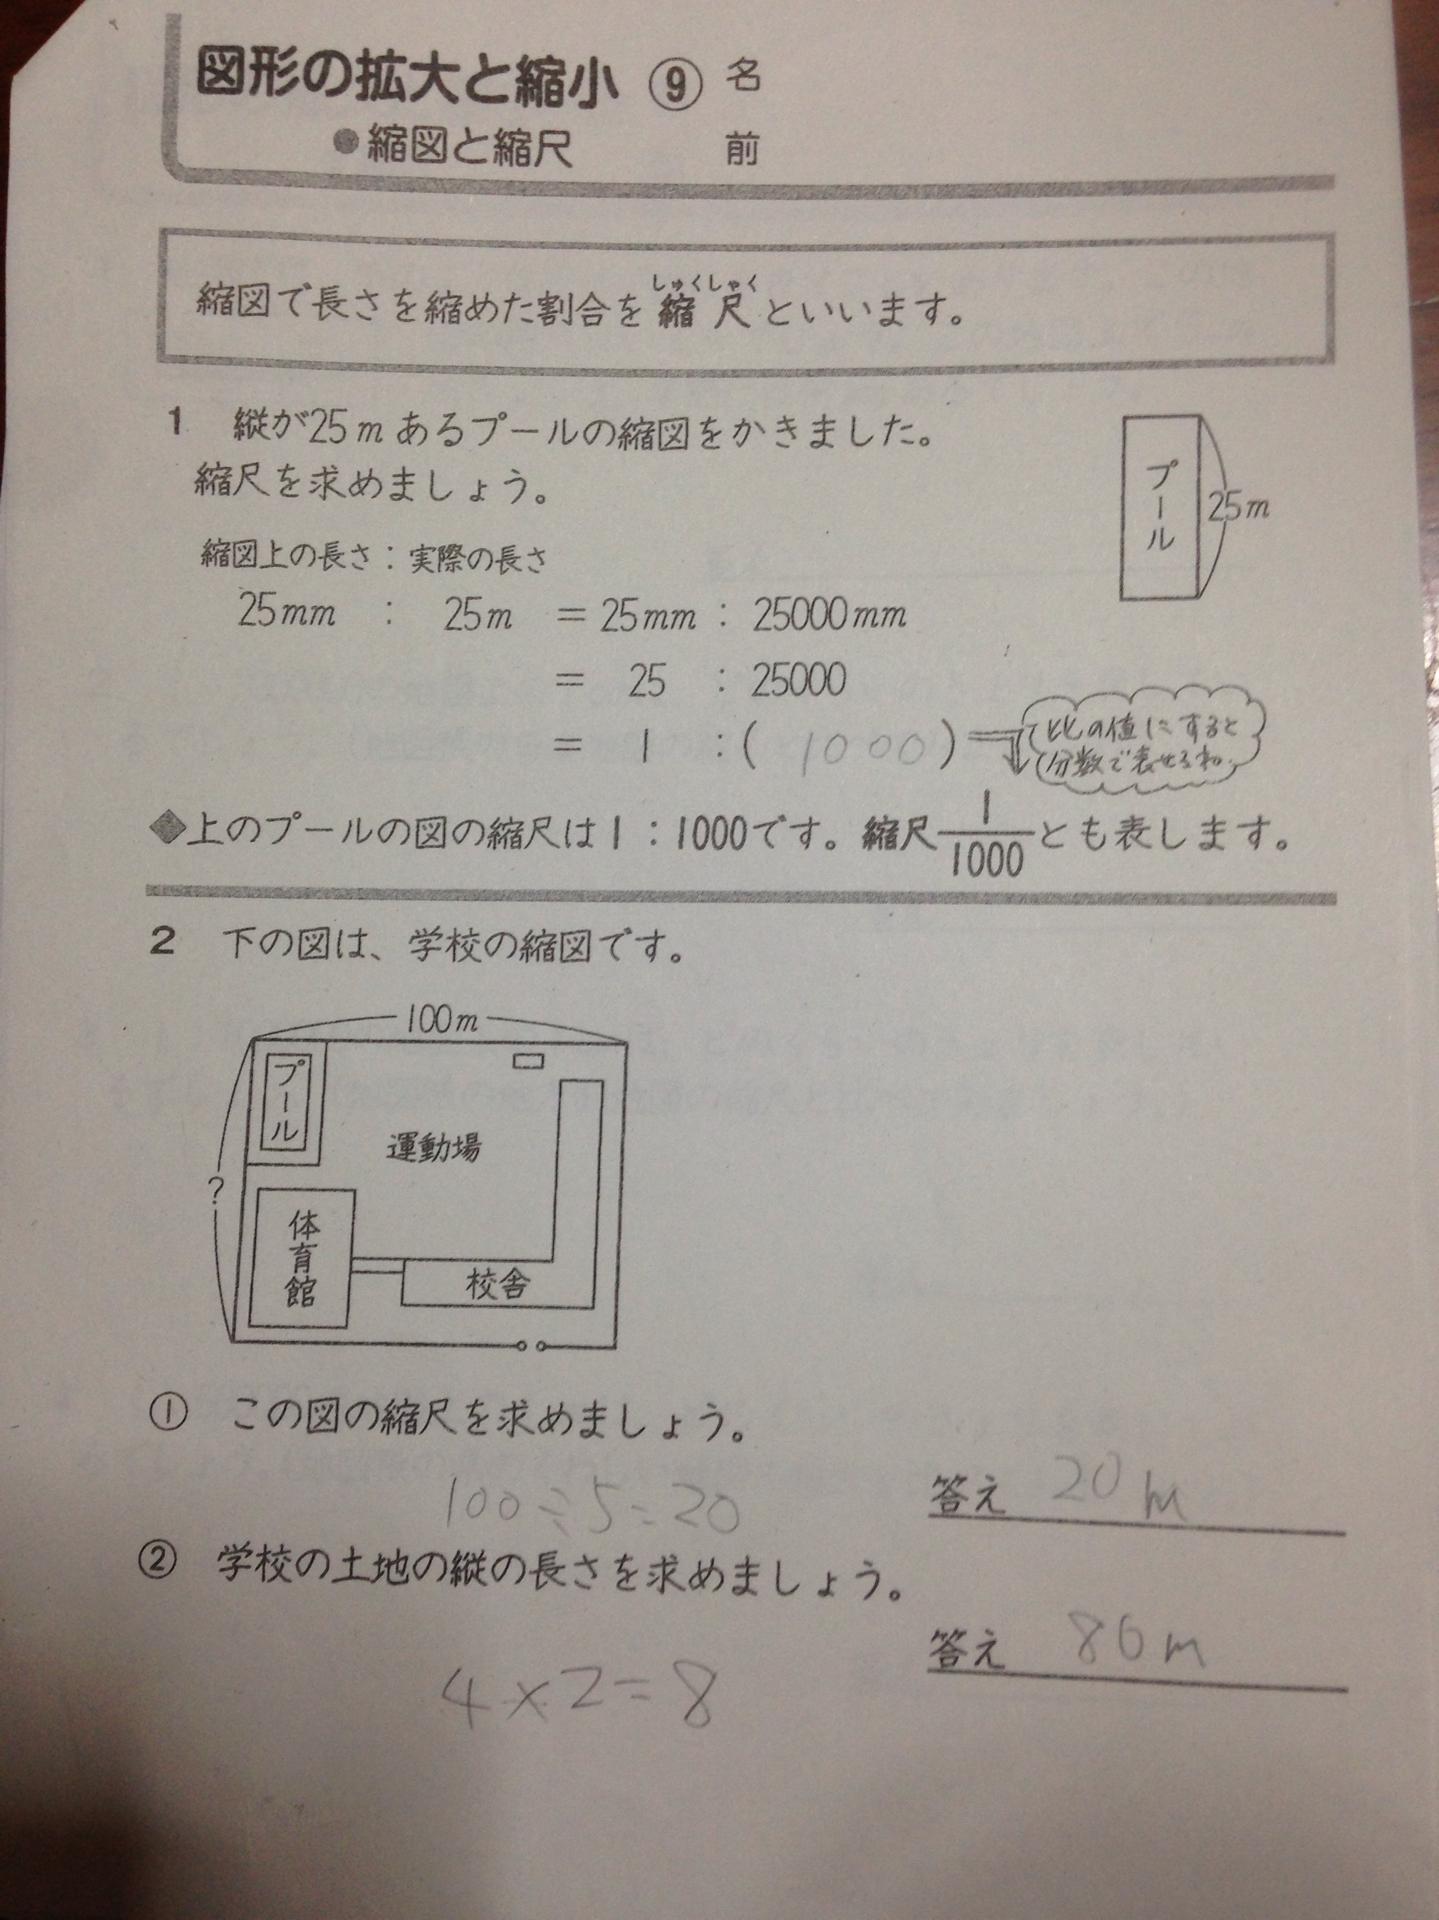 図形の拡大と縮小 ⑨ 名前
●縮図と縮尺
縮図で長さを縮めた割合を縮尺といいます。
しゅくしゃく
1 縦が25mあるプールの縮図をかきました。
縮尺を求めましょう。
プール
25m
縮図上の長さ：実際の長さ
25mm : 25m = 25mm : 25000mm
= 25 : 25000
= 1 :( 1000 )
比の値にすると
分数で表せるね。
◆上のプールの図の縮尺は1：1000です。縮尺1/1000とも表します。
2 下の図は、学校の縮図です。
100m
プール
運動場
?
体育館
校舎
① この図の縮尺を求めましょう。
100÷5=20
答え 20m
② 学校の土地の縦の長さを求めましょう。
答え 80m
4×2=8